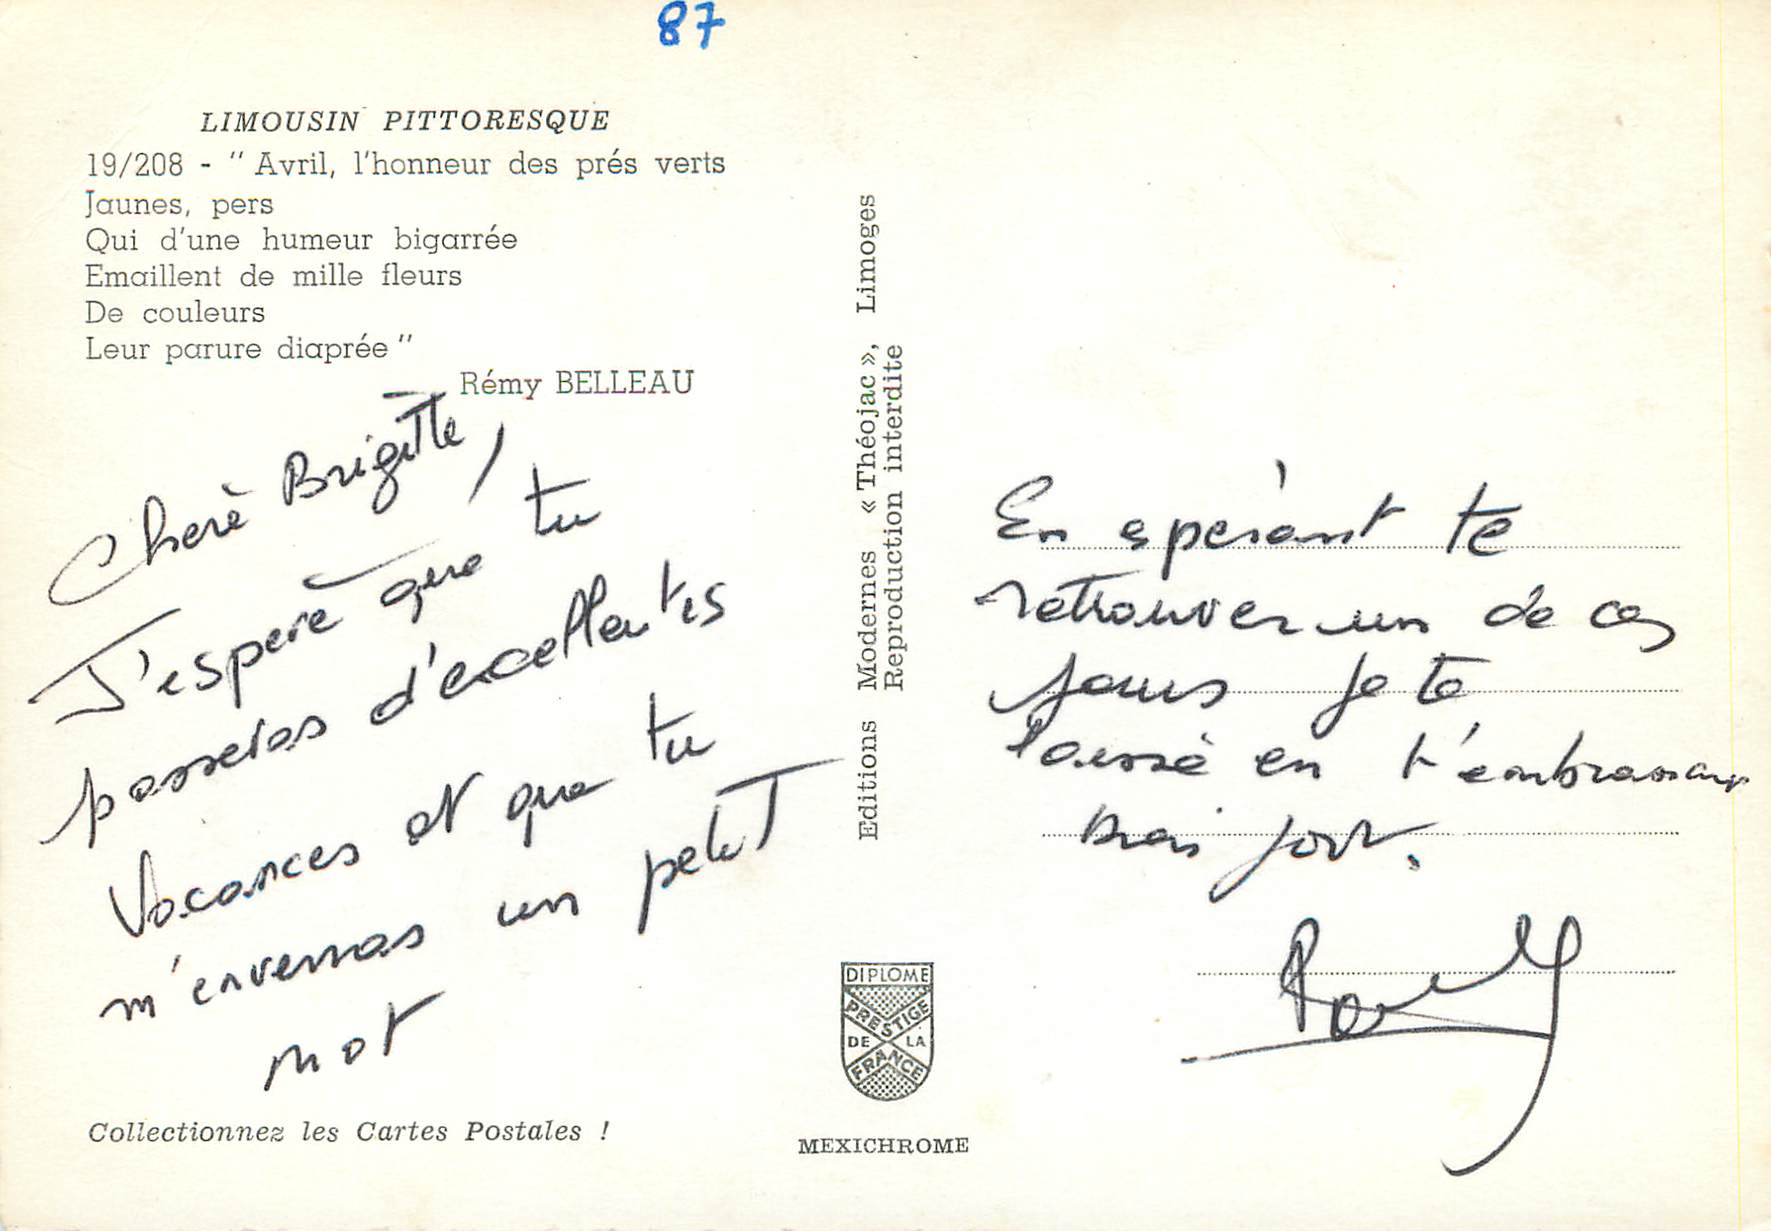 87
LIMOUSIN PITTORESQUE
19/208 - " Avril, l'honneur des prés verts
Jaunes, pers
Qui d'une humeur bigarrée
Emaillent de mille fleurs
De couleurs
Leur parure diaprée "
Rémy BELLEAU
Cherè Brigitte,
J'esperè que tu
passeras d'excellentes
Vacances et que tu
m'enverras un petit
mot
Collectionnez les Cartes Postales !
Editions Modernes « Théojac », Limoges
Reproduction interdite
DIPLOME
PRESTIGE
DE LA
FRANCE
MEXICHROME
En espèrant te
retrouver un de ces
jours je te
laisse en t'embrassant
bien fort.